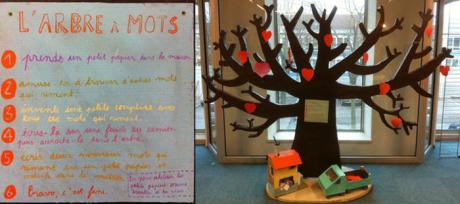 L'ARBRE à MOTS
1 prends un petit papier dans la maison
2 amuse-toi à trouver d'autres mots
qui riment.
3 invente une petite comptine avec
tous les mots qui riment.
4 écris-la sur une feuille
puis accroche-la dans l'arbre.
5 écris deux nouveaux mots qui
riment sur un petit papier et
dans la maison
6 Bravo, c'est fini.
petits papiers